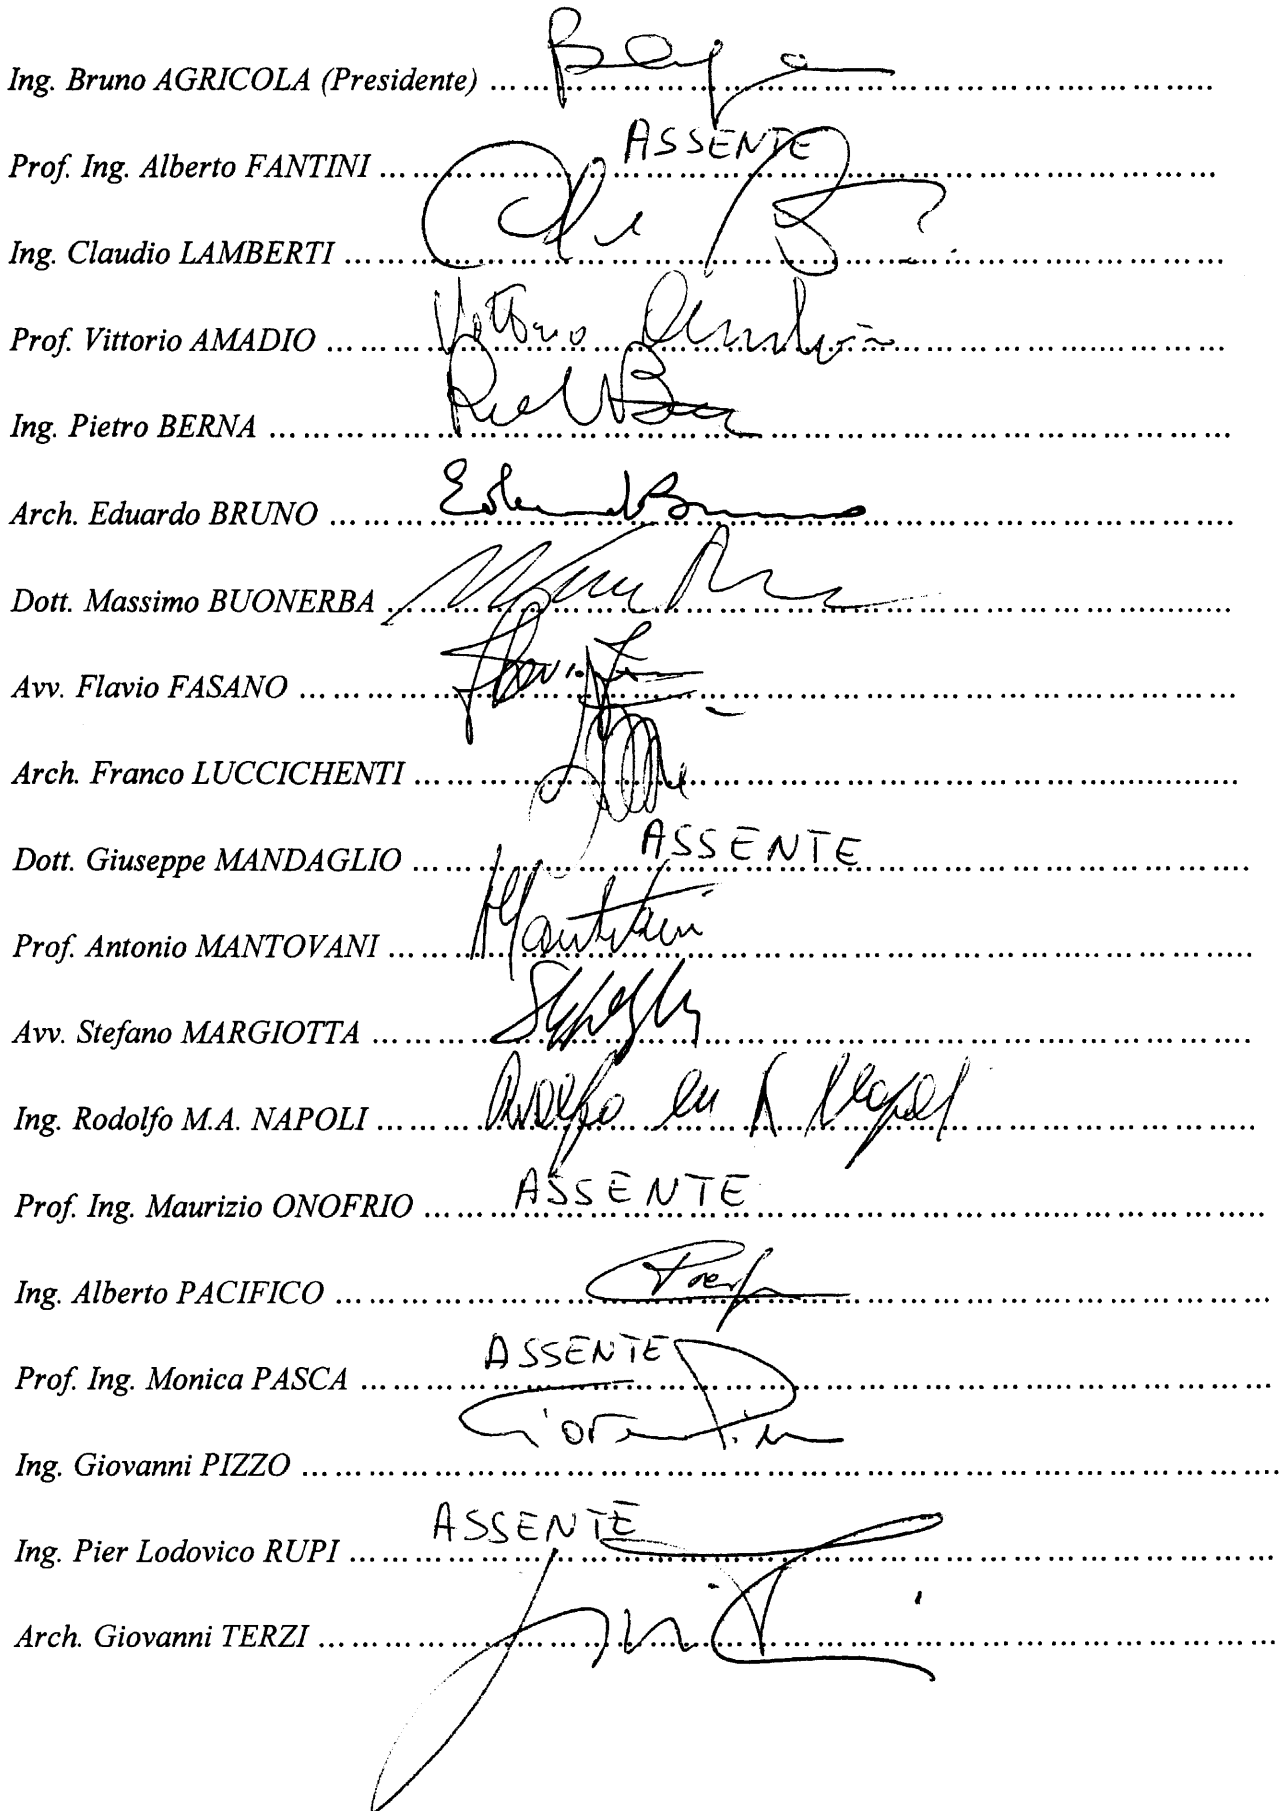 Ing. Bruno AGRICOLA (Presidente) ........................................
Prof. Ing. Alberto FANTINI ........................................ ASSENTE
Ing. Claudio LAMBERTI ........................................
Prof. Vittorio AMADIO ........................................ Vittorio Amadio
Ing. Pietro BERNA ........................................
Arch. Eduardo BRUNO ........................................ Eduardo Bruno
Dott. Massimo BUONERBA ........................................
Avv. Flavio FASANO ........................................
Arch. Franco LUCCICHENTI ........................................
Dott. Giuseppe MANDAGLIO ........................................ ASSENTE
Prof. Antonio MANTOVANI ........................................
Avv. Stefano MARGIOTTA ........................................
Ing. Rodolfo M.A. NAPOLI ........................................ Rodolfo M A Napoli
Prof. Ing. Maurizio ONOFRIO ........................................ ASSENTE
Ing. Alberto PACIFICO ........................................
Prof. Ing. Monica PASCA ........................................ ASSENTE
Ing. Giovanni PIZZO ........................................
Ing. Pier Lodovico RUPI ........................................ ASSENTE
Arch. Giovanni TERZI ........................................